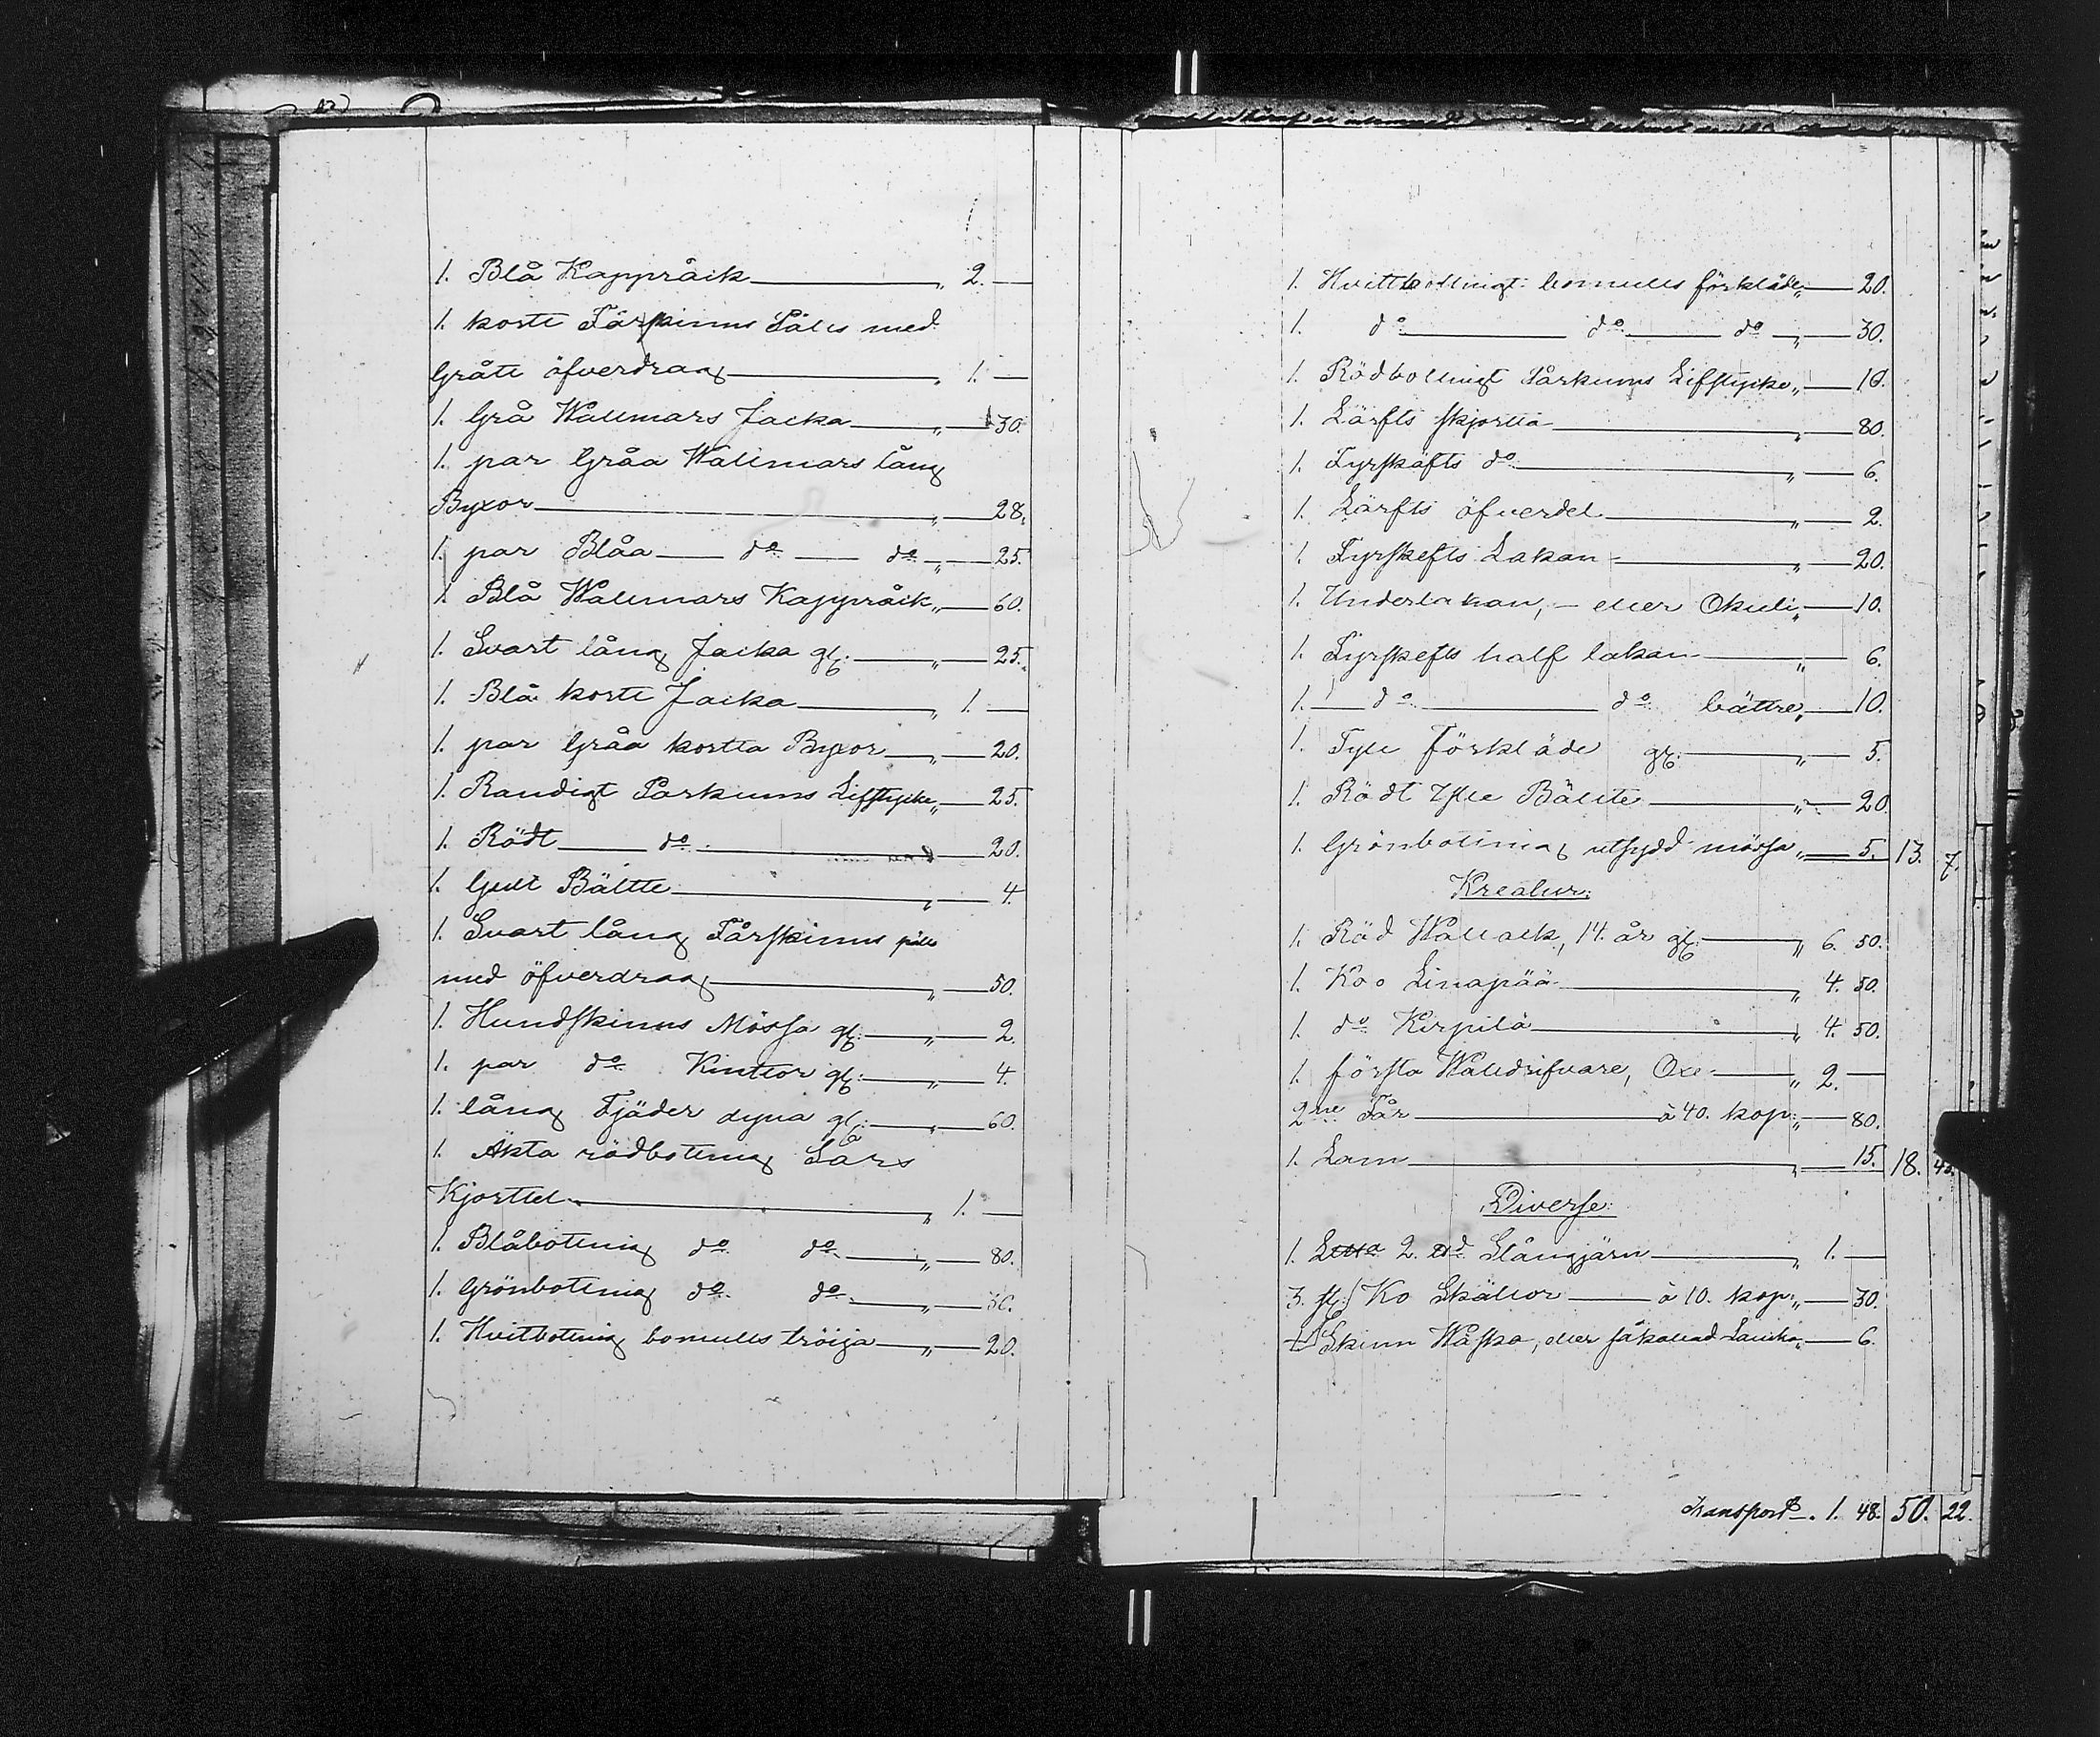 1. Blå Kappråck " 2. —
1. kort Fårskinns Päls med
Grått öfverdrag " 1. —
1. Grå Wallmars Jacka " — 30.
1. par Gråa Wallmars lång
Byxor " — 28.
1. par Blåa — do — do " — 25.
1. Blå Wallmars Kappråck " — 60.
1. Svart lång Jacka gl: " — 25.
1. Blå kort Jacka " 1. —
1. par Gråa kortta Byxor " — 20.
1. Randigt Parkums Lifstycke " — 25.
1. Rödt — do — 20.
1. Gult Bältte " — 4.
1. Svart lång Fårskinns päls
med öfverdrag " — 50.
1. Hundskinns Mössa gl: " — 2.
1. par do Kinttor gl: " — 4.
1. lång Fjäder dyna gl: " — 60.
1. Äkta rödbottnig Lårs
Kjorttel " 1. —
1. Blåbottnig do do " — 80.
1. Grönbottnig do do " — 30.
1. Hvitbottnig bomulls tröija " — 20.
1. Hvittbottnigt bomulls förkläde " — 20.
1. do do do " — 30.
1. Rödbottnigt Parkums Lifstycke " — 10.
1. Lärfts skjortta " — 80.
1. Fyrskäfts do " — 6.
1. Lärfts öfverdel " — 2.
1. Fyrskefts Lakan " — 20.
1. Underlakan, — eller Okuli " — 10.
1. Fyrskefts half lakan " — 6.
1. do do bättre " — 10.
1. Tyll förkläde gl: " — 5.
1. Rödt Ylle Bältte " — 20
1. Grönbottnig utsydd mössa " — 5. 13. 7.
Kreatur:
1. Röd Wallack, 14. år gl: " 6. 50.
1. Ko Linapää " 4. 50.
1. do Kirpilä " 4. 50.
1. första Walldrifvare, Oxe " 2. —
2ne Får à 40. kop: " — 80.
1. Lam " — 15. 18. 45.
Diverse:
1. 2. Stångjärn " 1. —
3. st: Ko Skällor — à 10. kop: " — 30.
1 Skinn Wäska, eller såkallad Laucku " — 6.
Transport . 1. 48. 50. 22.